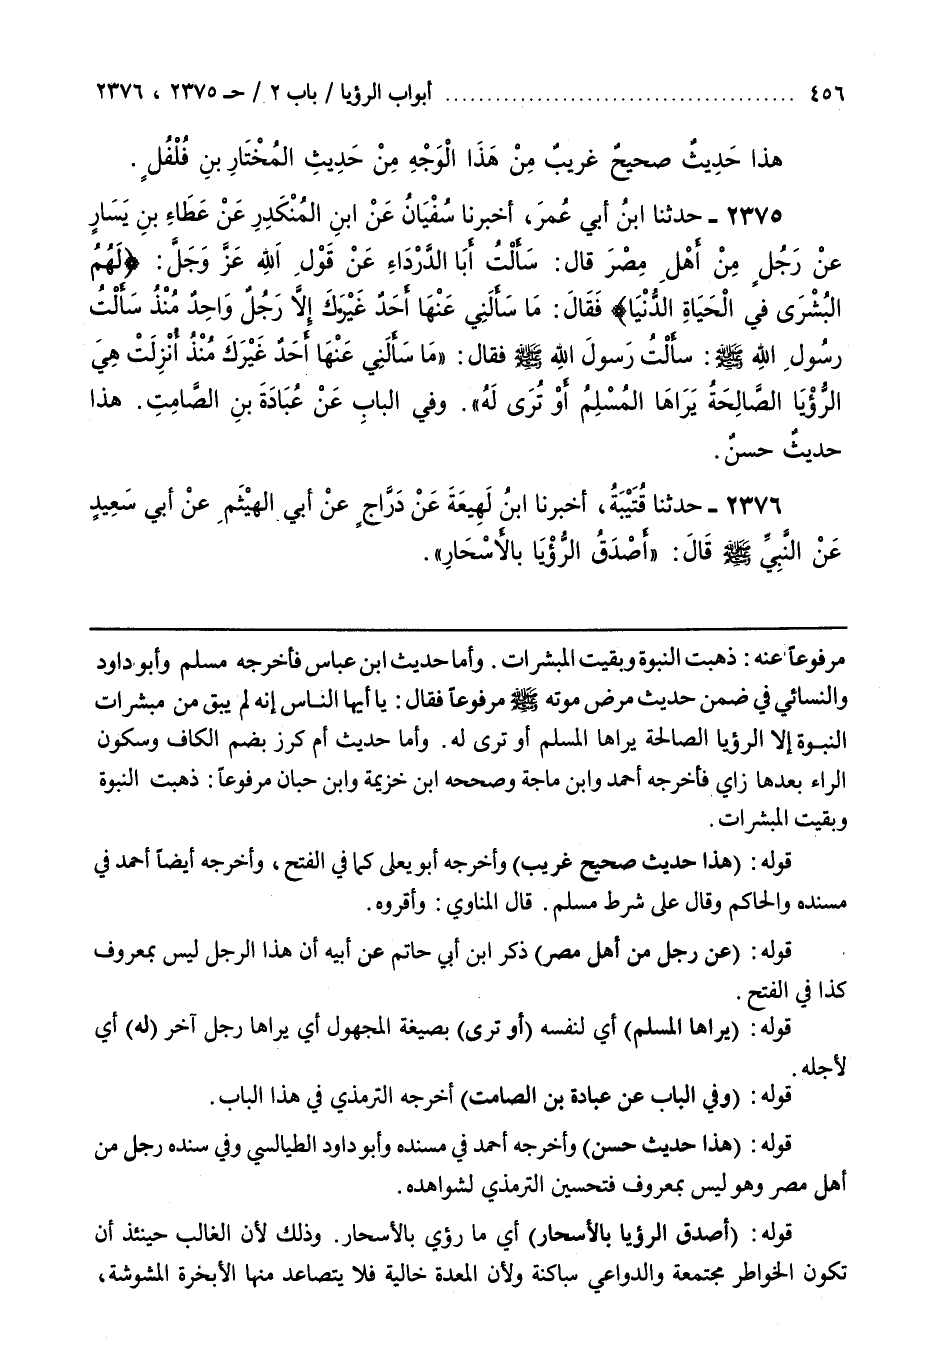 ٤٥٦ ........................................ أبواب الرؤيا / باب ٢ / حـ ٢٣٧٥ ، ٢٣٧٦
هذا حَدِيثٌ صحيحٌ غريبٌ مِنْ هَذَا الْوَجْهِ مِنْ حَدِيثِ المُخْتَارِ بنِ فُلْفُلٍ.
٢٣٧٥ ـ حدثنا ابنُ أبي عُمرَ، أخبرنا سُفْيَانُ عَنْ ابنِ المُنْكَدِرِ عَنْ عَطَاءِ بنِ يَسَارٍ
عنْ رَجُلٍ مِنْ أَهْلِ مِصْرَ قال: سَأَلْتُ أَبَا الدَّرْدَاءِ عَنْ قَوْلِ اللهِ عَزَّ وَجَلَّ: ﴿لَهُمُ
البُشْرَى في الْحَيَاةِ الدُّنْيَا﴾ فَقَالَ: مَا سَأَلَنِي عَنْهَا أَحَدٌ غَيْرَكَ إِلَّا رَجُلٌ وَاحِدٌ مُنْذُ سَأَلْتُ
رسُولَ اللهِ ﷺ: سأَلْتُ رَسولَ اللهِ ﷺ فقال: «مَا سَأَلَنِي عَنْهَا أَحَدٌ غَيْرَكَ مُنْذُ أُنْزِلَتْ هِيَ
الرُّؤْيَا الصَّالِحَةُ يَرَاهَا المُسْلِمُ أَوْ تُرَى لَهُ». وفي البابِ عَنْ عُبَادَةَ بنِ الصَّامِتِ. هذا
حديثٌ حسنٌ.
٢٣٧٦ ـ حدثنا قُتَيْبَةُ، أخبرنا ابنُ لَهِيعَةَ عَنْ دَرَّاجٍ عنْ أبي الهيْثَمِ عنْ أبي سَعِيدٍ
عَنْ النَّبِيِّ ﷺ قَالَ: «أَصْدَقُ الرُّؤْيَا بالأَسْحَارِ».
مرفوعاً عنه: ذهبت النبوة وبقيت المبشرات. وأما حديث ابن عباس فأخرجه مسلم وأبو داود
والنسائي في ضمن حديث مرض موته ﷺ مرفوعاً فقال: يا أيها الناس إنه لم يبق من مبشرات
النبوة إلا الرؤيا الصالحة يراها المسلم أو ترى له. وأما حديث أم كرز بضم الكاف وسكون
الراء بعدها زاي فأخرجه أحمد وابن ماجة وصححه ابن خزيمة وابن حبان مرفوعاً: ذهبت النبوة
وبقيت المبشرات.
قوله: (هذا حديث صحيح غريب) وأخرجه أبو يعلى كما في الفتح، وأخرجه أيضاً أحمد في
مسنده والحاكم وقال على شرط مسلم. قال المناوي: وأقروه.
قوله: (عن رجل من أهل مصر) ذكر ابن أبي حاتم عن أبيه أن هذا الرجل ليس بمعروف
كذا في الفتح.
قوله: (يراها المسلم) أي لنفسه (أو ترى) بصيغة المجهول أي يراها رجل آخر (له) أي
لأجله.
قوله: (وفي الباب عن عبادة بن الصامت) أخرجه الترمذي في هذا الباب.
قوله: (هذا حديث حسن) وأخرجه أحمد في مسنده وأبو داود الطيالسي وفي سنده رجل من
أهل مصر وهو ليس بمعروف فتحسين الترمذي لشواهده.
قوله: (أصدق الرؤيا بالأسحار) أي ما رؤي بالأسحار. وذلك لأن الغالب حينئذ أن
تكون الخواطر مجتمعة والدواعي ساكنة ولأن المعدة خالية فلا يتصاعد منها الأبخرة المشوشة،